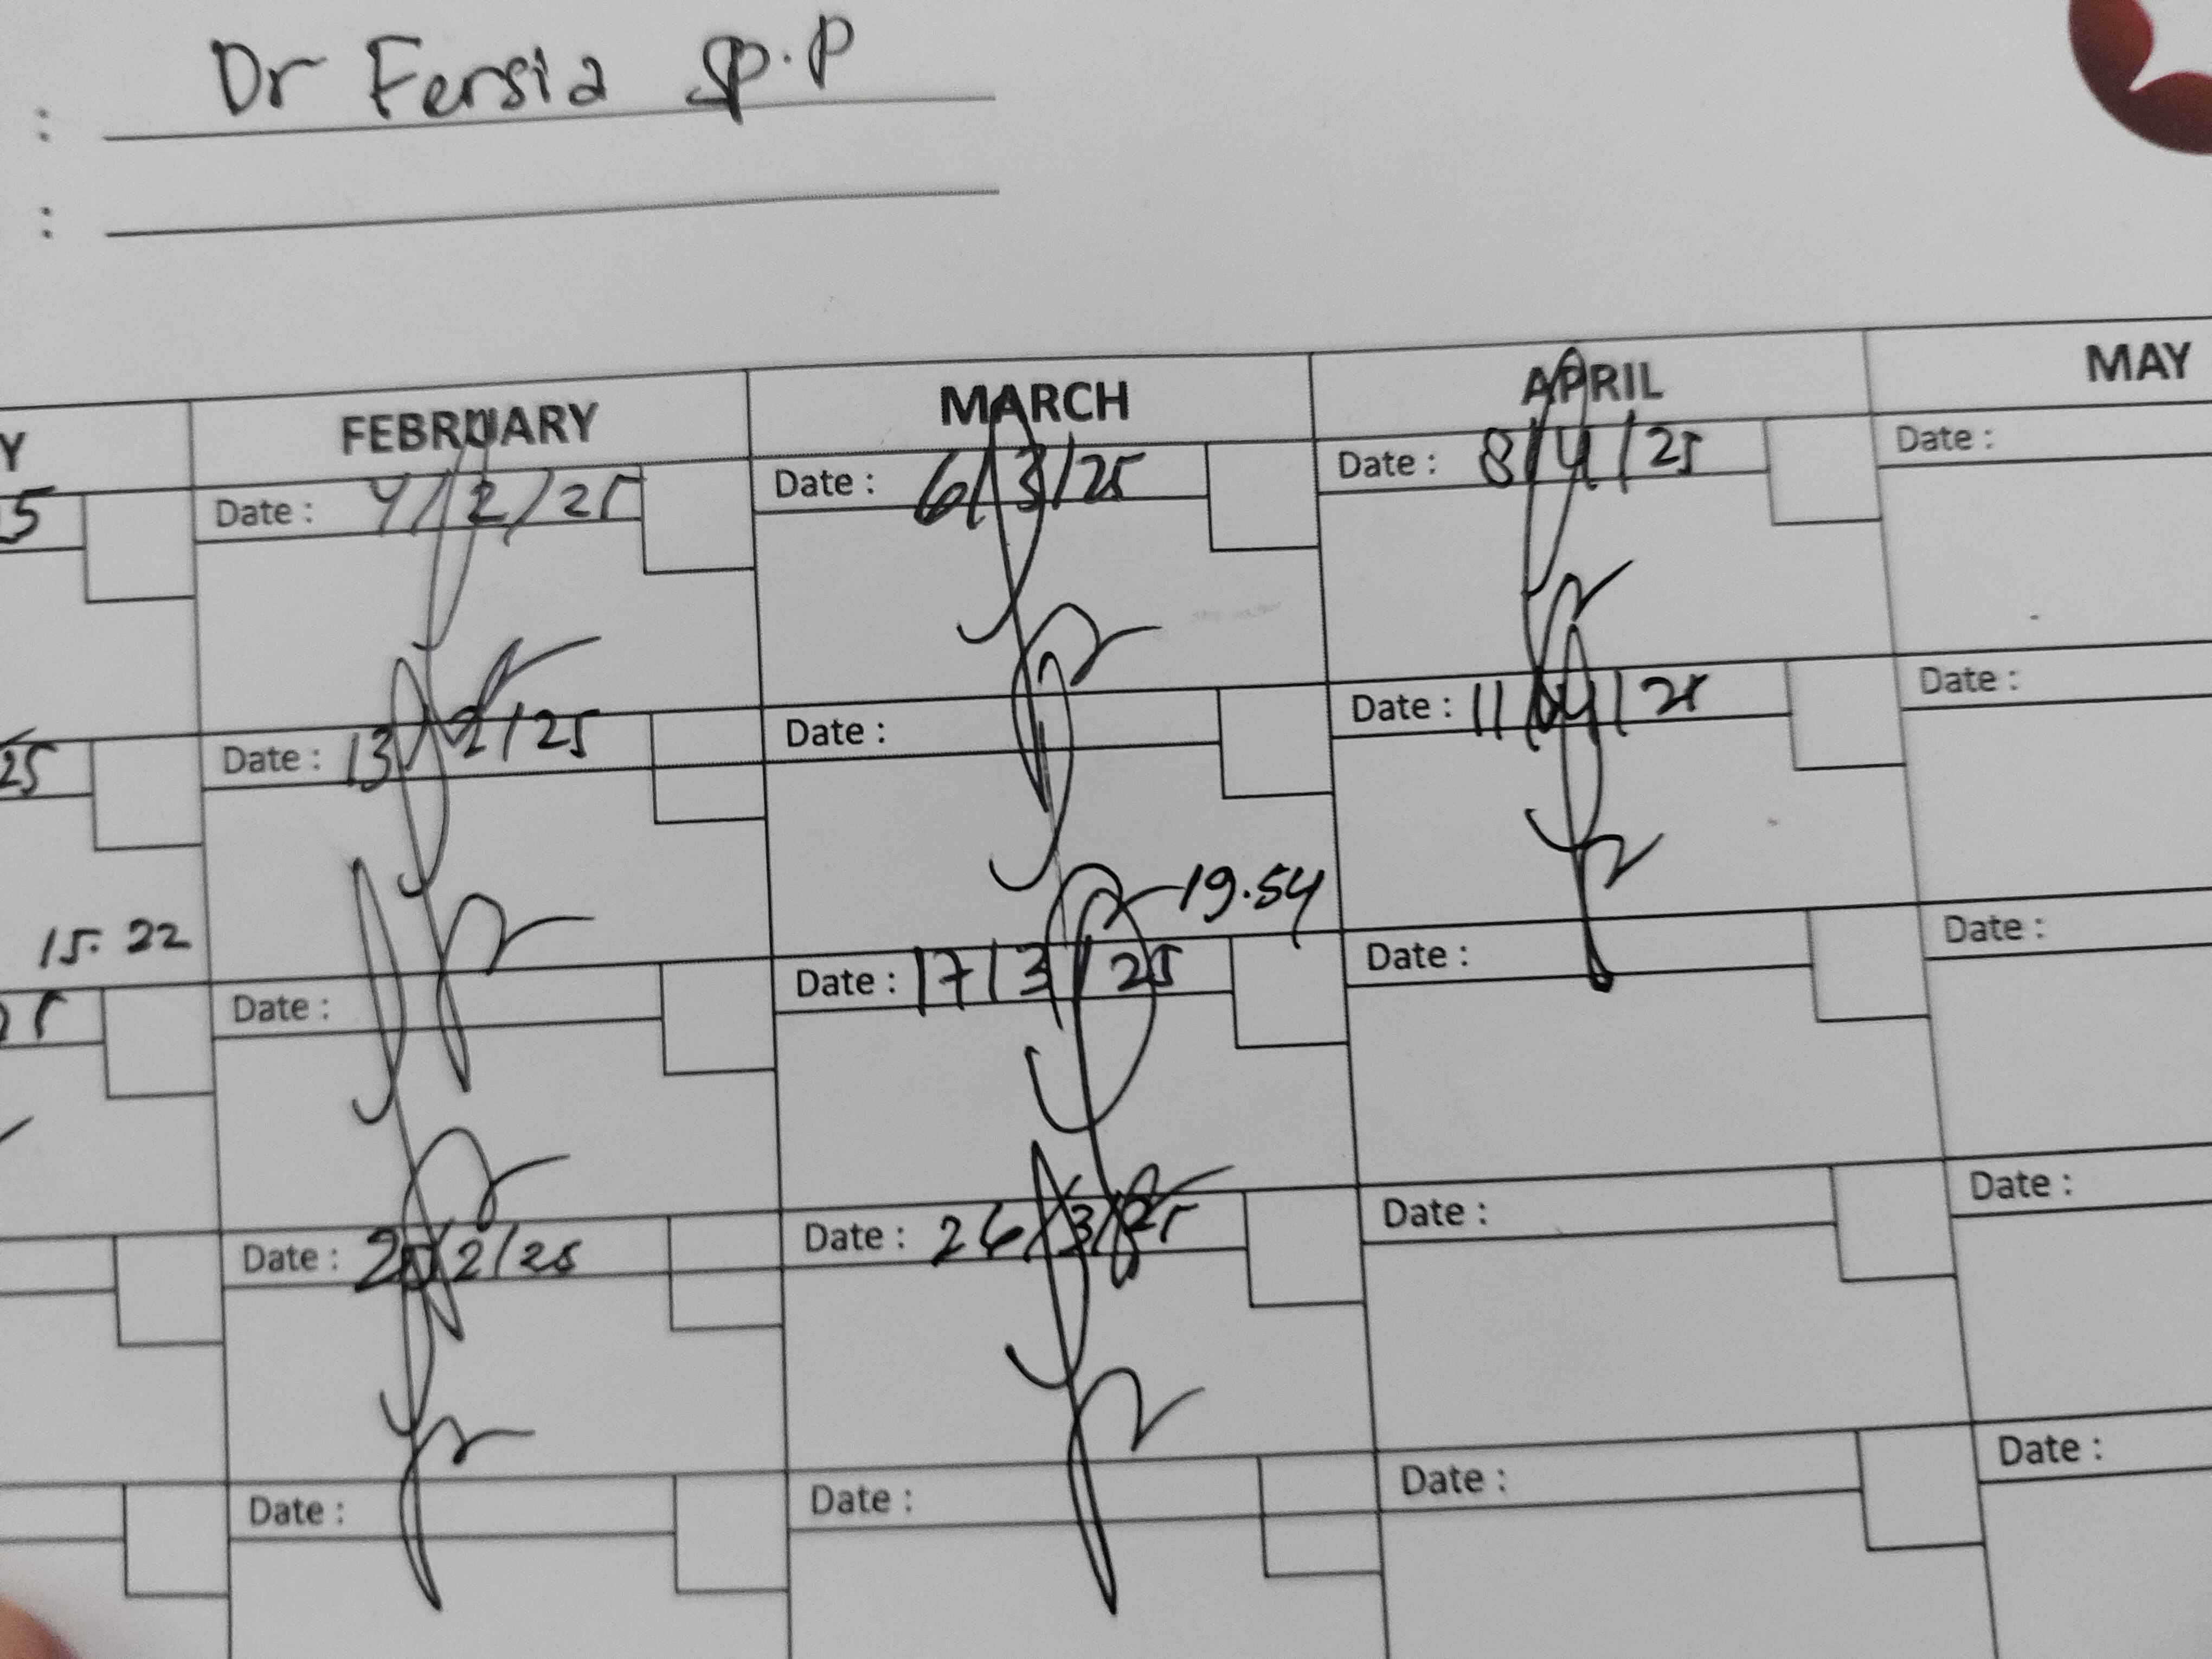 : Dr Fersia Sp.P
:
Y FEBRUARY MARCH APRIL MAY
5 Date : 4/2/25 Date : 6/3/25 Date : 8/4/25 Date :
25 Date : 13/2/25 Date : Date : 11/04/25 Date :
15.22 19.54
Date : Date : 17/3/25 Date : Date :
Date : 25/2/25 Date : 26/3/25 Date : Date :
Date : Date : Date : Date :